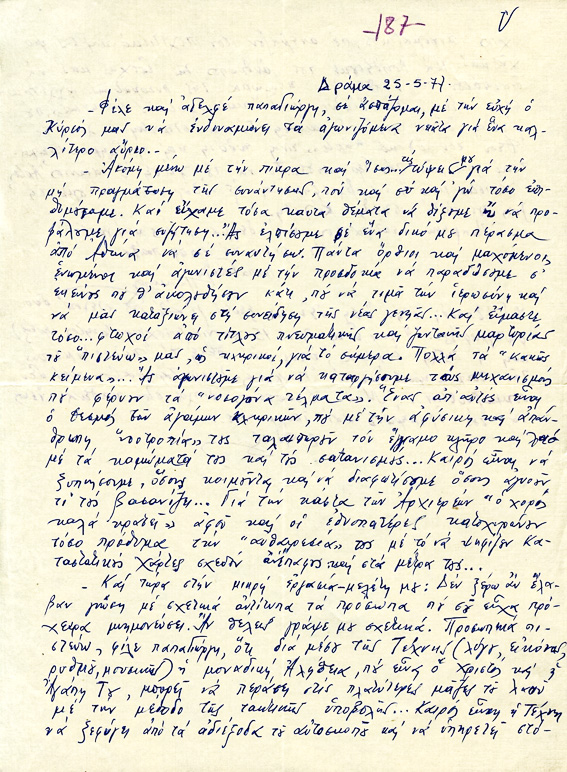 -187-
V
Δράμα 25-5-77.
- Φίλε καί ἀδελφέ παπαΓιώργη, σέ ἀσπάζομαι, μέ τήν εὐχή ὁ
Κύριός μας νά ἐνδυναμώνει τά ἀγωνιζόμενα νειάτα γιά ἕνα καλ-
λίτερο αὔριο.-
Ἀκόμη μένω μέ τήν πίκρα καί γιά τήν
μή πραγμάτωση τῆς συνάντησης, πού καί σύ καί 'γώ τόσο ἐπι-
θυμούσαμε. Καί εἴχαμε τόσα καυτά θέματα νά θίξουμε ἤ νά προ-
βάλουμε γιά συζήτηση... Ἄς ἐλπίσουμε σέ ἕνα δικό μου πέρασμα
ἀπό Ἀθήνα νά σέ συναντήσω. Πάντα ὄρθιοι καί μαχόμενοι,
ἑνωμένοι καί ἀγωνιστές μέ τήν προσδοκία νά παραδώσουμε σ'
ἐκείνους πού θ' ἀκολουθήσουν κάτι, πού νά τιμᾶ τήν ἱερωσύνη καί
νά μᾶς καταξιώνει στή συνείδηση τῆς νέας γενηᾶς... Καί εἴμαστε
τόσο... φτωχοί ἀπό τίτλους πνευματικῆς καί ζωντανῆς μαρτυρίας
τοῦ "πιστεύω" μας, οἱ κληρικοί, γιά τό σήμερα. Πολλά τά "κακῶς
κείμενα"... Ἄς ἀγωνιστοῦμε γιά νά καταργήσουμε τούς μηχανισμούς
πού φέρουν τά "νοσογόνα τέλματα". Ἕνας ἀπ' αὐτούς εἶναι
ὁ θεσμός τῶν ἀγάμων κληρικῶν, πού μέ τήν ἀφύσικη καί ἀπάν-
θρωπη "νοοτροπία" τους ταλαιπωροῦν τόν ἔγγαμο κλῆρο καί λαό
μέ τά καμώματά τους καί τούς σατανισμούς... Καιρός εἶναι νά
ξυπνήσουμε, ὅσους κοιμοῦνται καί νά διαφωτίσουμε ὅσους ἀγνοοῦν
τί τούς βασανίζει... Γιά τήν κάστα τῶν Ἀρχιερέων "ὁ χορός
καλά κρατεῖ" ἀφοῦ καί οἱ ἐθνοπατέρες κατοχυρώνουν
τόσο πρόθυμα τήν "αὐθαιρεσία" τους μέ τό νά ψηφίζουν Κα-
ταστατικούς Χάρτες σχεδόν καί στά μέτρα τους...
- Καί τώρα στήν μικρή ἐργασία-μελέτη μου: Δέν ξέρω ἄν ἔλα-
βαν γνώση μέ σχετικά ἀντίτυπα τά πρόσωπα πού σοῦ εἶχα πρό-
χειρα μνημονεύσει. Ἄν θέλεις γράψε μου σχετικά. Προσωπικά πι-
στεύω, φίλε παπαΓιώργη, ὅτι διά μέσου τῆς Τέχνης (λόγου, εἰκόνας,
ρυθμοῦ, μουσικῆς) ἡ μοναδική Ἀλήθεια, πού εἶναι ὁ Χριστός καί ἡ
Ἀγάπη Του, μπορεῖ νά περάσει στίς πλατύτερες μάζες τοῦ λαοῦ
μέ τήν μέθοδο τῆς τακτικῆς ὑποβολῆς... Καιρός εἶναι ἡ Τέχνη
νά ξεφύγει ἀπό τά ἀδιέξοδα τοῦ αὐτοσκοποῦ καί νά ὑπηρετεῖ στο-